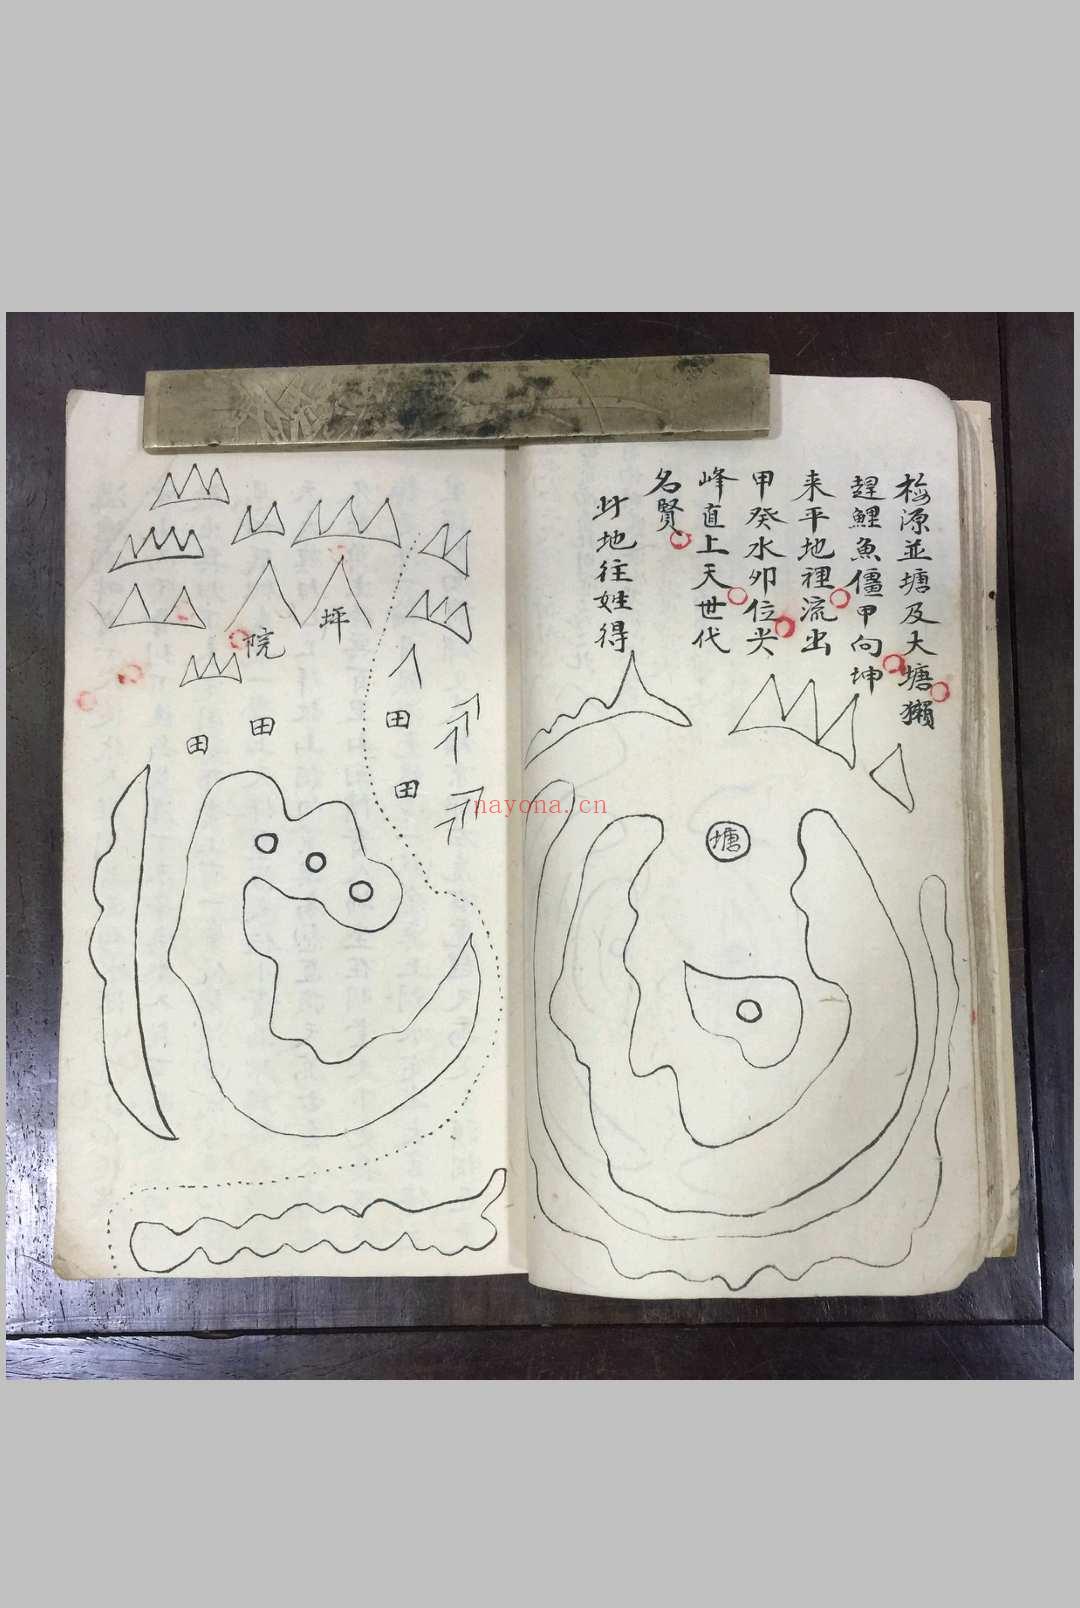 梅源並塘及大塘獺
趕鯉魚僵甲向坤
来平地裡流出
甲癸水卯位尖
峰直上天世代
名賢
此地往姓得
塘
坪
院
田
田
田
田
nayona.cn